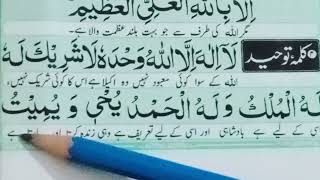 اِلَّا بِاللّٰهِ الْعَلِیِّ الْعَظِیْمِ
مگر اللہ کی طرف سے جو بہت بلند عظمت والا ہے۔
کلمۂ توحید لَآ اِلٰهَ اِلَّا اللّٰهُ وَحْدَهٗ لَا شَرِیْكَ لَهٗ
اللہ کے سوا کوئی معبود نہیں وہ اکیلا ہے اس کا کوئی شریک نہیں
لَهُ الْمُلْكُ وَلَهُ الْحَمْدُ یُحْیٖ وَ یُمِیْتُ
اسی کے لیے ہے بادشاہی اور اسی کے لیے تعریف ہے وہی زندہ کرتا اور